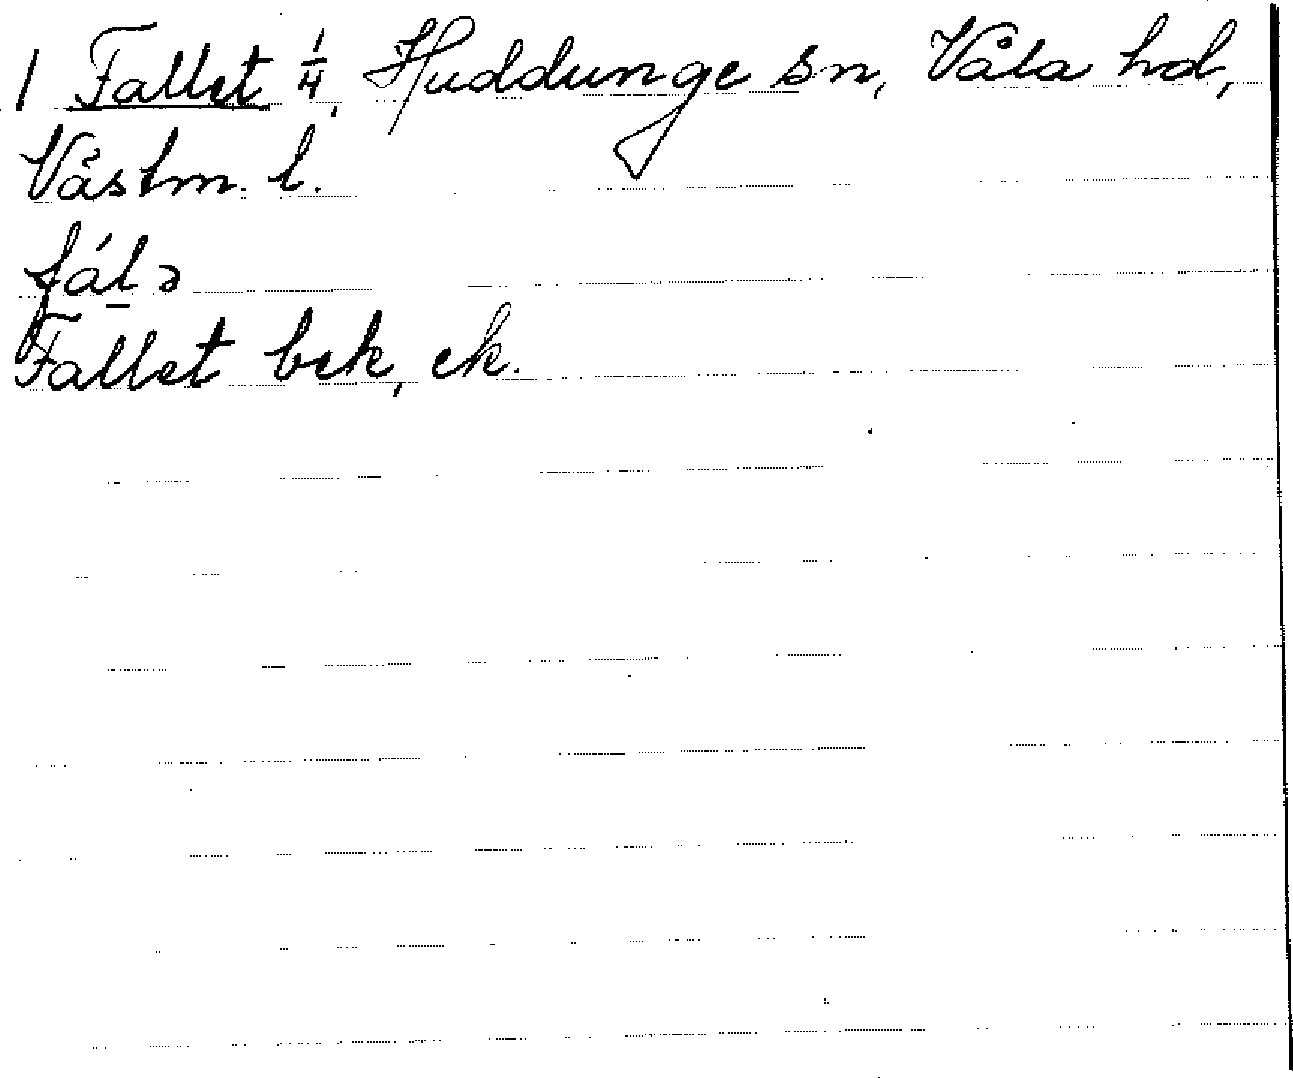 1 Fallet 1/4, Huddunge sn, Våla hd,
Västm. l.
fál̲ə
Fallet bek, ek.